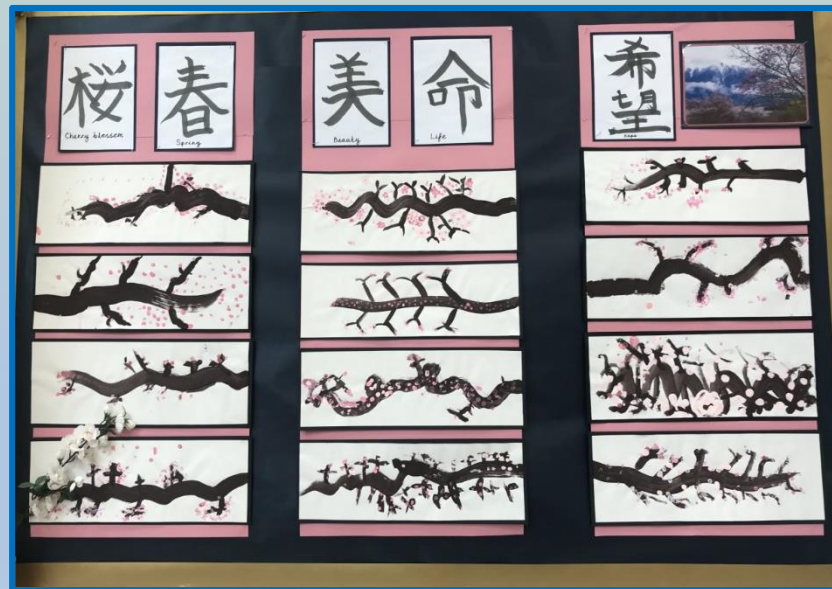 桜
Cherry blossom
春
Spring
美
Beauty
命
Life
希
望
Hope